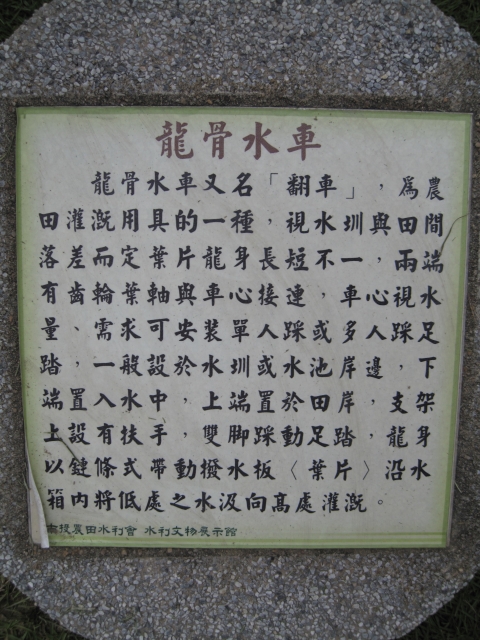 龍骨水車
龍骨水車又名「翻車」，為農
田灌溉用具的一種，視水圳與田間
落差而定葉片龍身長短不一，兩端
有齒輪葉軸與車心接連，車心視水
量、需求可安裝單人踩或多人踩足
踏，一般設於水圳或池岸邊，下
端置入水中，上端置於田岸，支架
上設有扶手，雙腳踩動足踏，龍身
以鏈條式帶動撥水板〈葉片〉沿水
箱內將低處之水汲向高處灌溉。
農田水利會 水利文物展示館